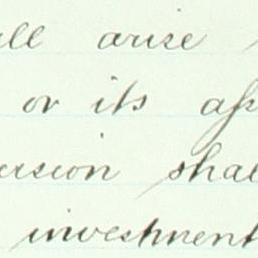 all arise
or its ass
ersion shal
investment